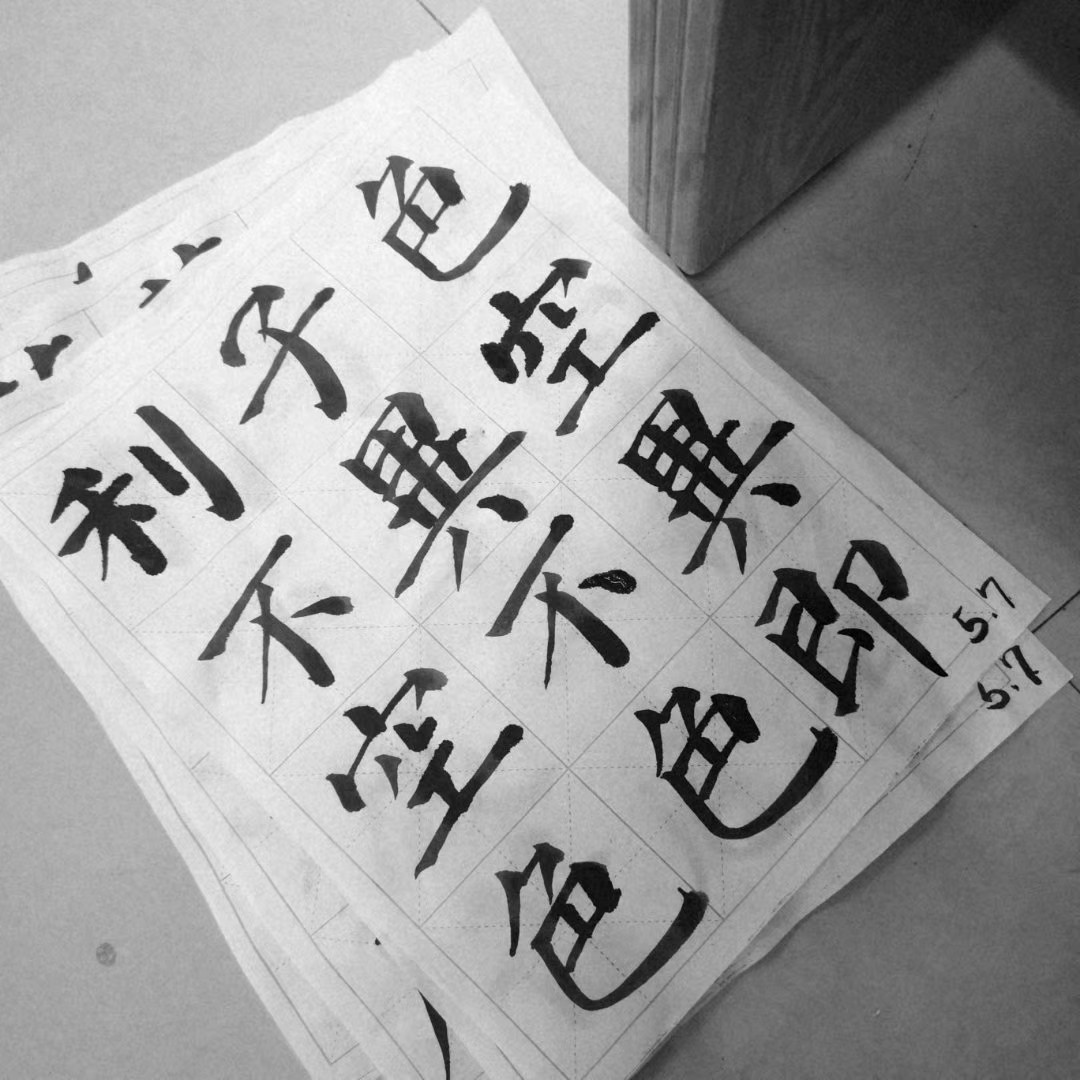 利子色
不異空
空不異
色色即
5.7
5.7